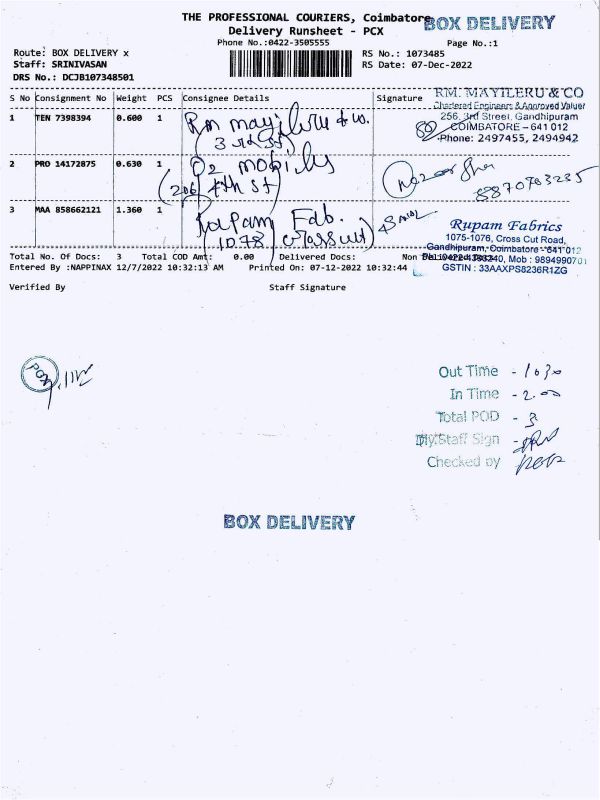 THE PROFESSIONAL COURIERS, Coimbatore
BOX DELIVERY
Delivery Runsheet - PCX
Phone No.:0422-3505555
Page No.:1
Route: BOX DELIVERY x
RS No.: 1073485
Staff: SRINIVASAN
RS Date: 07-Dec-2022
DRS No.: DCJB107348501
S No Consignment No Weight PCS Consignee Details Signature
RM. MAYILERU & CO
Chartered Engineers & Approved Valuer
256, 3rd Street, Gandhipuram
COIMBATORE - 641 012
Phone: 2497455, 2494942
1 TEN 7398394 0.600 1 Rm mayileru & co.
(3rd st)
2 PRO 14172875 0.630 1 O2 mobiles
(206 4th st)
3 MAA 858662121 1.360 1 Rupam Fab.
(1078
Rupam Fabrics
1075-1076, Cross Cut Road,
Gandhipuram, Coimbatore - 641 012
Mob : 9894990701
GSTIN : 33AAXPS8236R1ZG
Total No. Of Docs: 3 Total COD Amt: 0.00 Delivered Docs: Non
Entered By :NAPPINAX 12/7/2022 10:32:13 AM Printed On: 07-12-2022 10:32:44
Verified By Staff Signature
Out Time - 1030
In Time - 2.00
Total POD - 3
Dly.Staff Sign -
Checked by
BOX DELIVERY